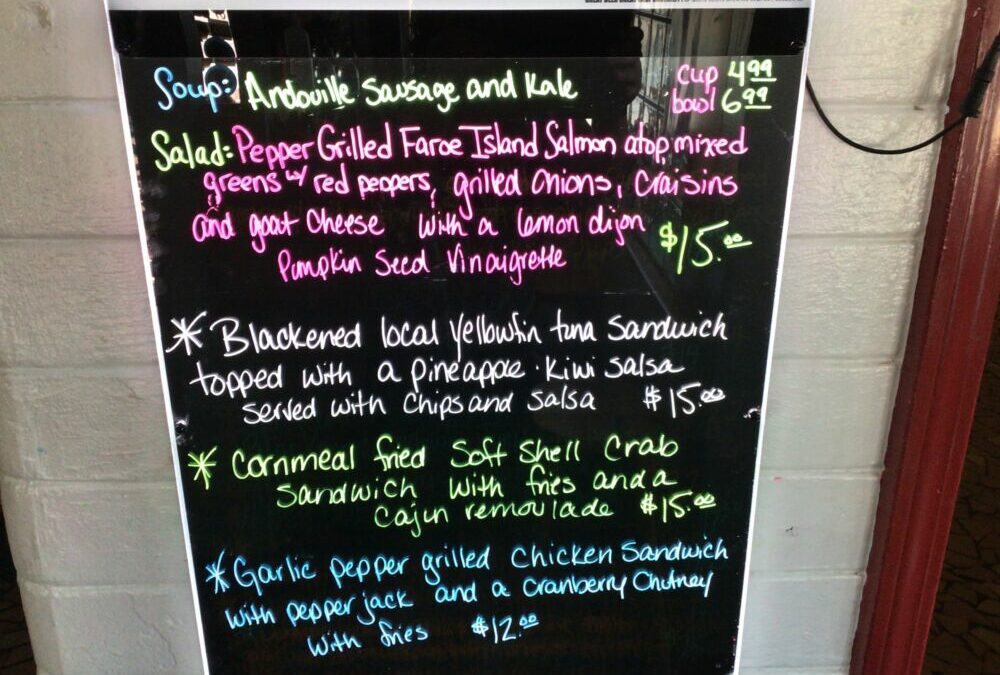 Soup: Andouille Sausage and Kale cup 4.99
bowl 6.99
Salad: Pepper Grilled Faroe Island Salmon atop mixed
greens w/ red peppers, grilled onions, craisins
and goat cheese with a lemon dijon
Pumpkin Seed Vinaigrette $15.00
* Blackened local yellowfin tuna sandwich
topped with a pineapple · kiwi salsa
served with chips and salsa $15.00
* Cornmeal fried Soft Shell Crab
sandwich with fries and a
cajun remoulade $15.00
* Garlic pepper grilled chicken sandwich
with pepper jack and a cranberry chutney
with fries $12.00